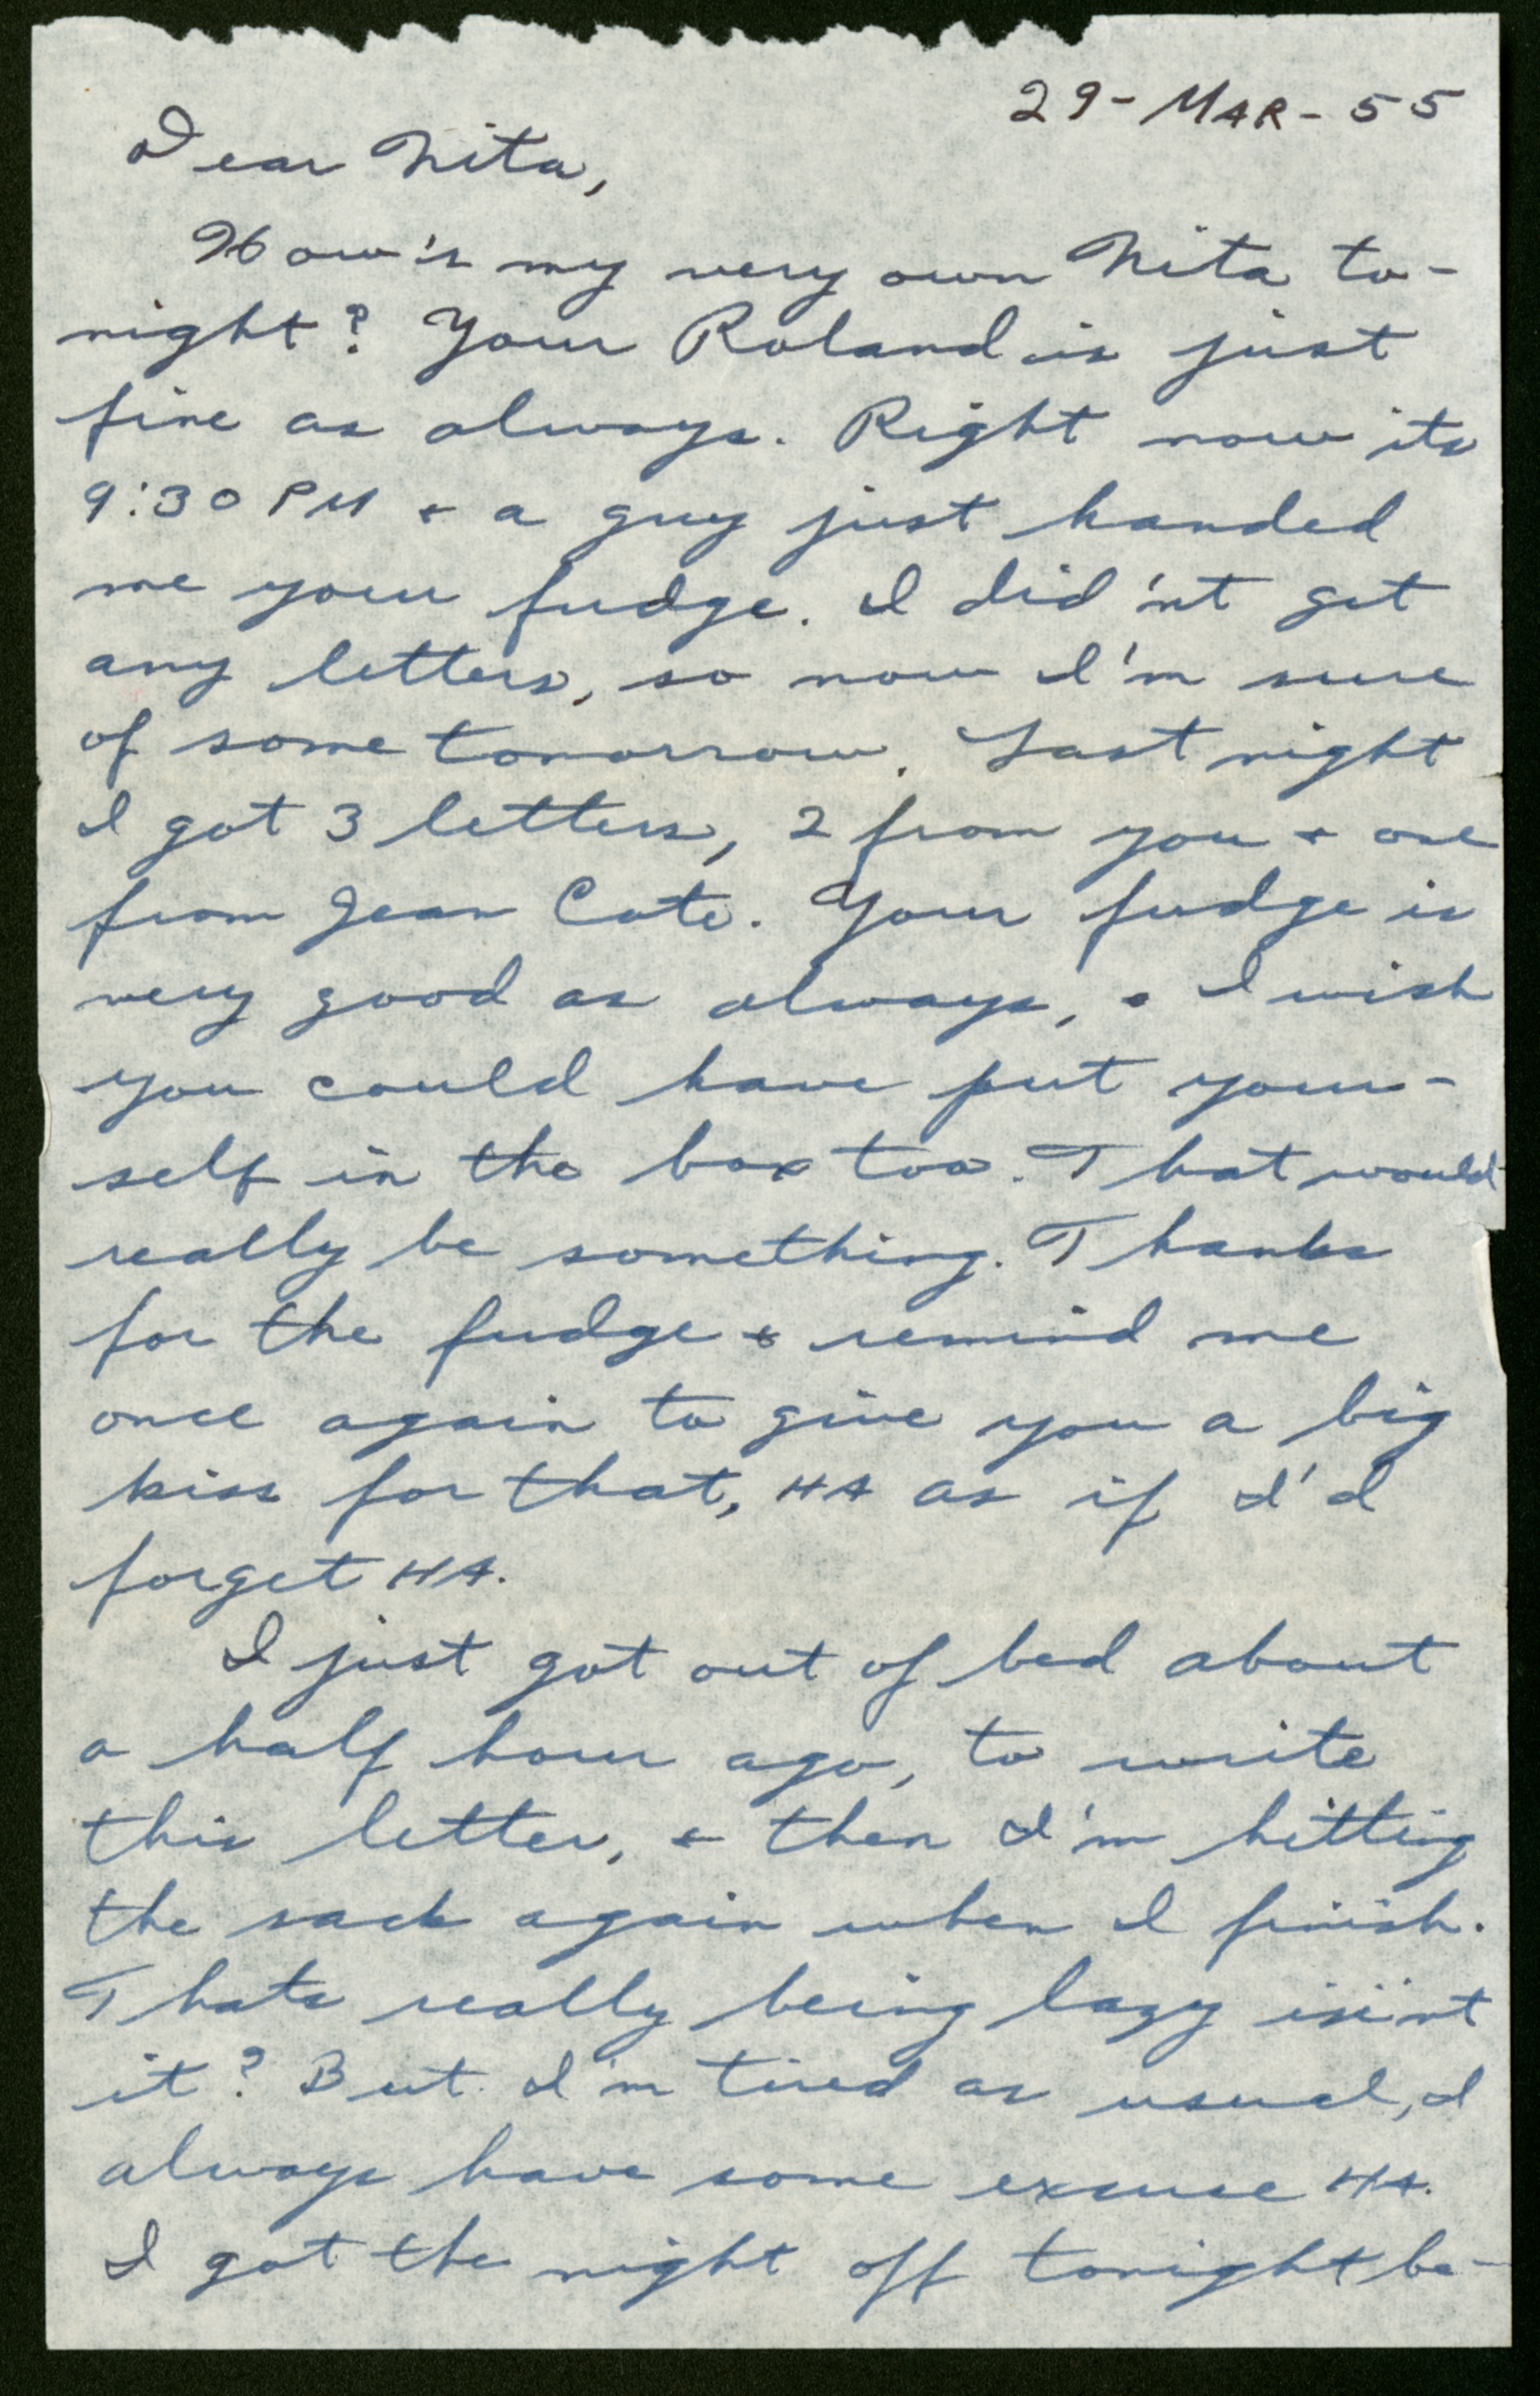 29-MAR-55
Dear Nita,
How's my very own Nita to-
night? Your Roland is just
fine as always. Right now its
9:30 PM + a guy just handed
me your fudge. I did'nt get
any letters, so now I'm sure
of some tomorrow. Last night
I got 3 letters, 2 from you + one
from Jean Cote. Your fudge is
very good as always, + I wish
you could have put your-
self in the box too. That would
really be something. Thanks
for the fudge + remind me
once again to give you a big
kiss for that, HA as if I'd
forget HA.
I just got out of bed about
a half hour ago, to write
this letter, + then I'm hitting
the sack again when I finish.
Thats really being lazy is'nt
it? But I'm tired as usual, I
always have some excuse HA.
I got the night off tonight be-